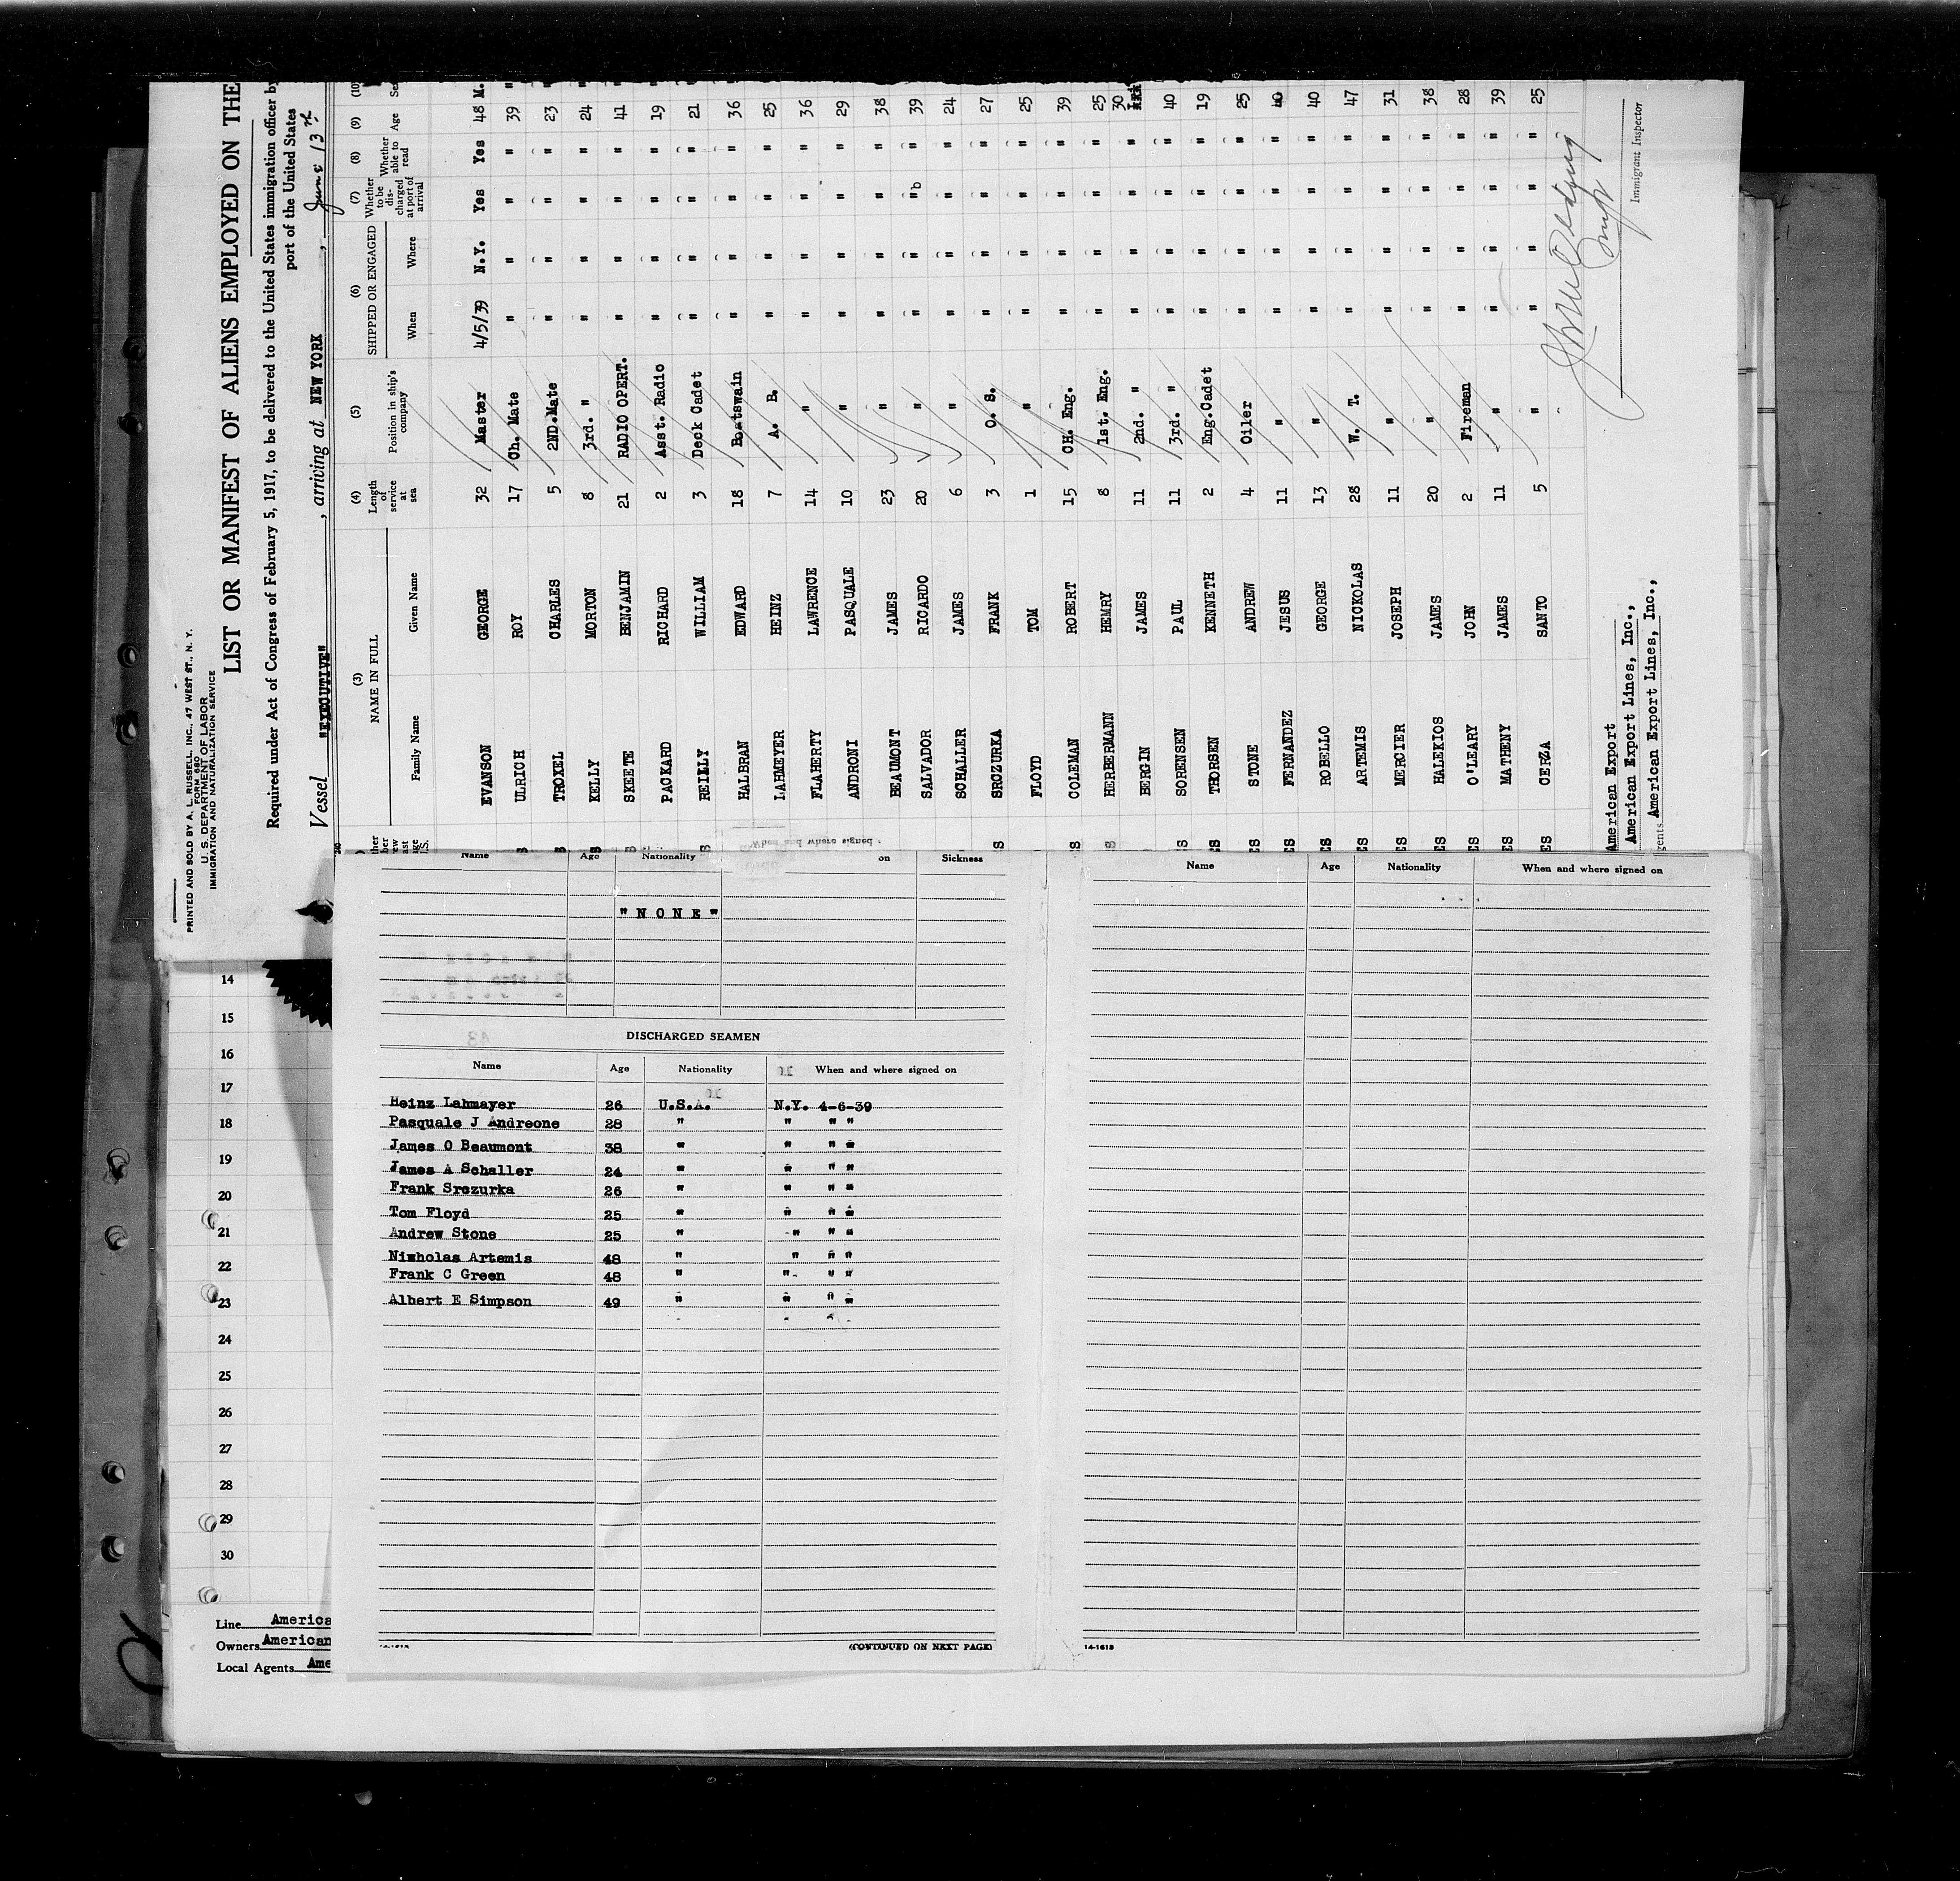 PRINTED AND SOLD BY A. L. RUSSELL, INC., 47 WEST ST., N. Y.
FORM 680
U. S. DEPARTMENT OF LABOR
IMMIGRATION AND NATURALIZATION SERVICE
LIST OR MANIFEST OF ALIENS EMPLOYED ON THE
Required under Act of Congress of February 5, 1917, to be delivered to the United States immigration officer by
port of the United States
Vessel "EXECUTIVE", arriving at NEW YORK, June 13th
(3) (4) (5) (6) (7) (8) (9) (10)
NAME IN FULL Length of service at sea Position in ship's company SHIPPED OR ENGAGED Whether to be discharged at port of arrival Whether able to read Age Se
Family Name Given Name When Where
EVANSON GEORGE 32 Master 4/5/39 N.Y. Yes Yes 48 M.
ULRICH ROY 17 Ch. Mate " " " " 39 "
TROXEL CHARLES 5 2ND.Mate " " " " 23 "
KELLY MORTON 8 3rd. " " " " " 24 "
SKEETE BENJAMIN 21 RADIO OPERT. " " " " 41 "
PACKARD RICHARD 2 Asst. Radio " " " " 19 "
REILLY WILLIAM 3 Deck Cadet " " " " 21 "
HALBRAN EDWARD 18 Boatswain " " " " 36 "
LAHMEYER HEINZ 7 A. B. " " " " 25 "
FLAHERTY LAWRENCE 14 " " " " " 36 "
ANDRONI PASQUALE 10 " " " " " 29 "
BEAUMONT JAMES 23 " " " " " 38 "
SALVADOR RICARDO 20 " " " " " 39 "
SCHALLER JAMES 6 " " " " " 24 "
SROZURKA FRANK 3 O. S. " " " " 27
FLOYD TOM 1 " " " " " 25
COLEMAN ROBERT 15 CH. Eng. " " " " 39
HERBERMANN HEMRY 8 1st. Eng. " " " " 25
BERGIN JAMES 11 2nd. " " " " " 30
SORENSEN PAUL 11 3rd. " " " " " 40
THORSEN KENNETH 2 Eng.Cadet " " " " 19
STONE ANDREW 4 Oiler " " " " 25
FERNANDEZ JESUS 11 " " " " " 40
ROBELLO GEORGE 13 " " " " " 40
ARTEMIS NICKOLAS 28 W. T. " " " " 47
MERCIER JOSEPH 11 " " " " " 31
HALEKIOS JAMES 20 " " " " " 38
O'LEARY JOHN 2 Fireman " " " " 28
MATHENY JAMES 11 " " " " " 39
CERZA SANTO 5 " " " " " 25
American Export
American Export Lines, Inc.,
American Export Lines, Inc.,
Immigrant Inspector
Name Age Nationality on Sickness
"NONE"
DISCHARGED SEAMEN
Name Age Nationality When and where signed on
Heinz Lahmayer 26 U.S.A. N.Y. 4-6-39
Pasquale J Andreone 28 " " " "
James O Beaumont 38 " " " "
James A Schaller 24 " " " "
Frank Srozurka 26 " " " "
Tom Floyd 25 " " " "
Andrew Stone 25 " " " "
Nixholas Artemis 48 " " " "
Frank C Green 48 " " " "
Albert E Simpson 49 " " " "
(CONTINUED ON NEXT PAGE)
Name Age Nationality When and where signed on
14-1618
14
15
16
17
18
19
20
21
22
23
24
25
26
27
28
29
30
Line America
Owners American
Local Agents Ame